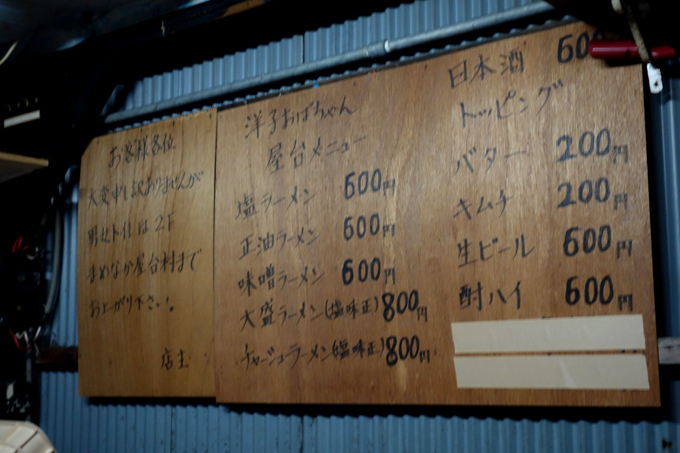 お客様各位
大変申し訳ありませんが
男女トイレは2F
まめなか屋台村まで
お上がり下さい。
店主
洋子おばちゃん
屋台メニュー
塩ラーメン 600円
正油ラーメン 600円
味噌ラーメン 600円
大盛ラーメン(塩味正) 800円
チャーシューラーメン(塩味正) 800円
日本酒 600
トッピング
バター 200円
キムチ 200円
生ビール 600円
酎ハイ 600円